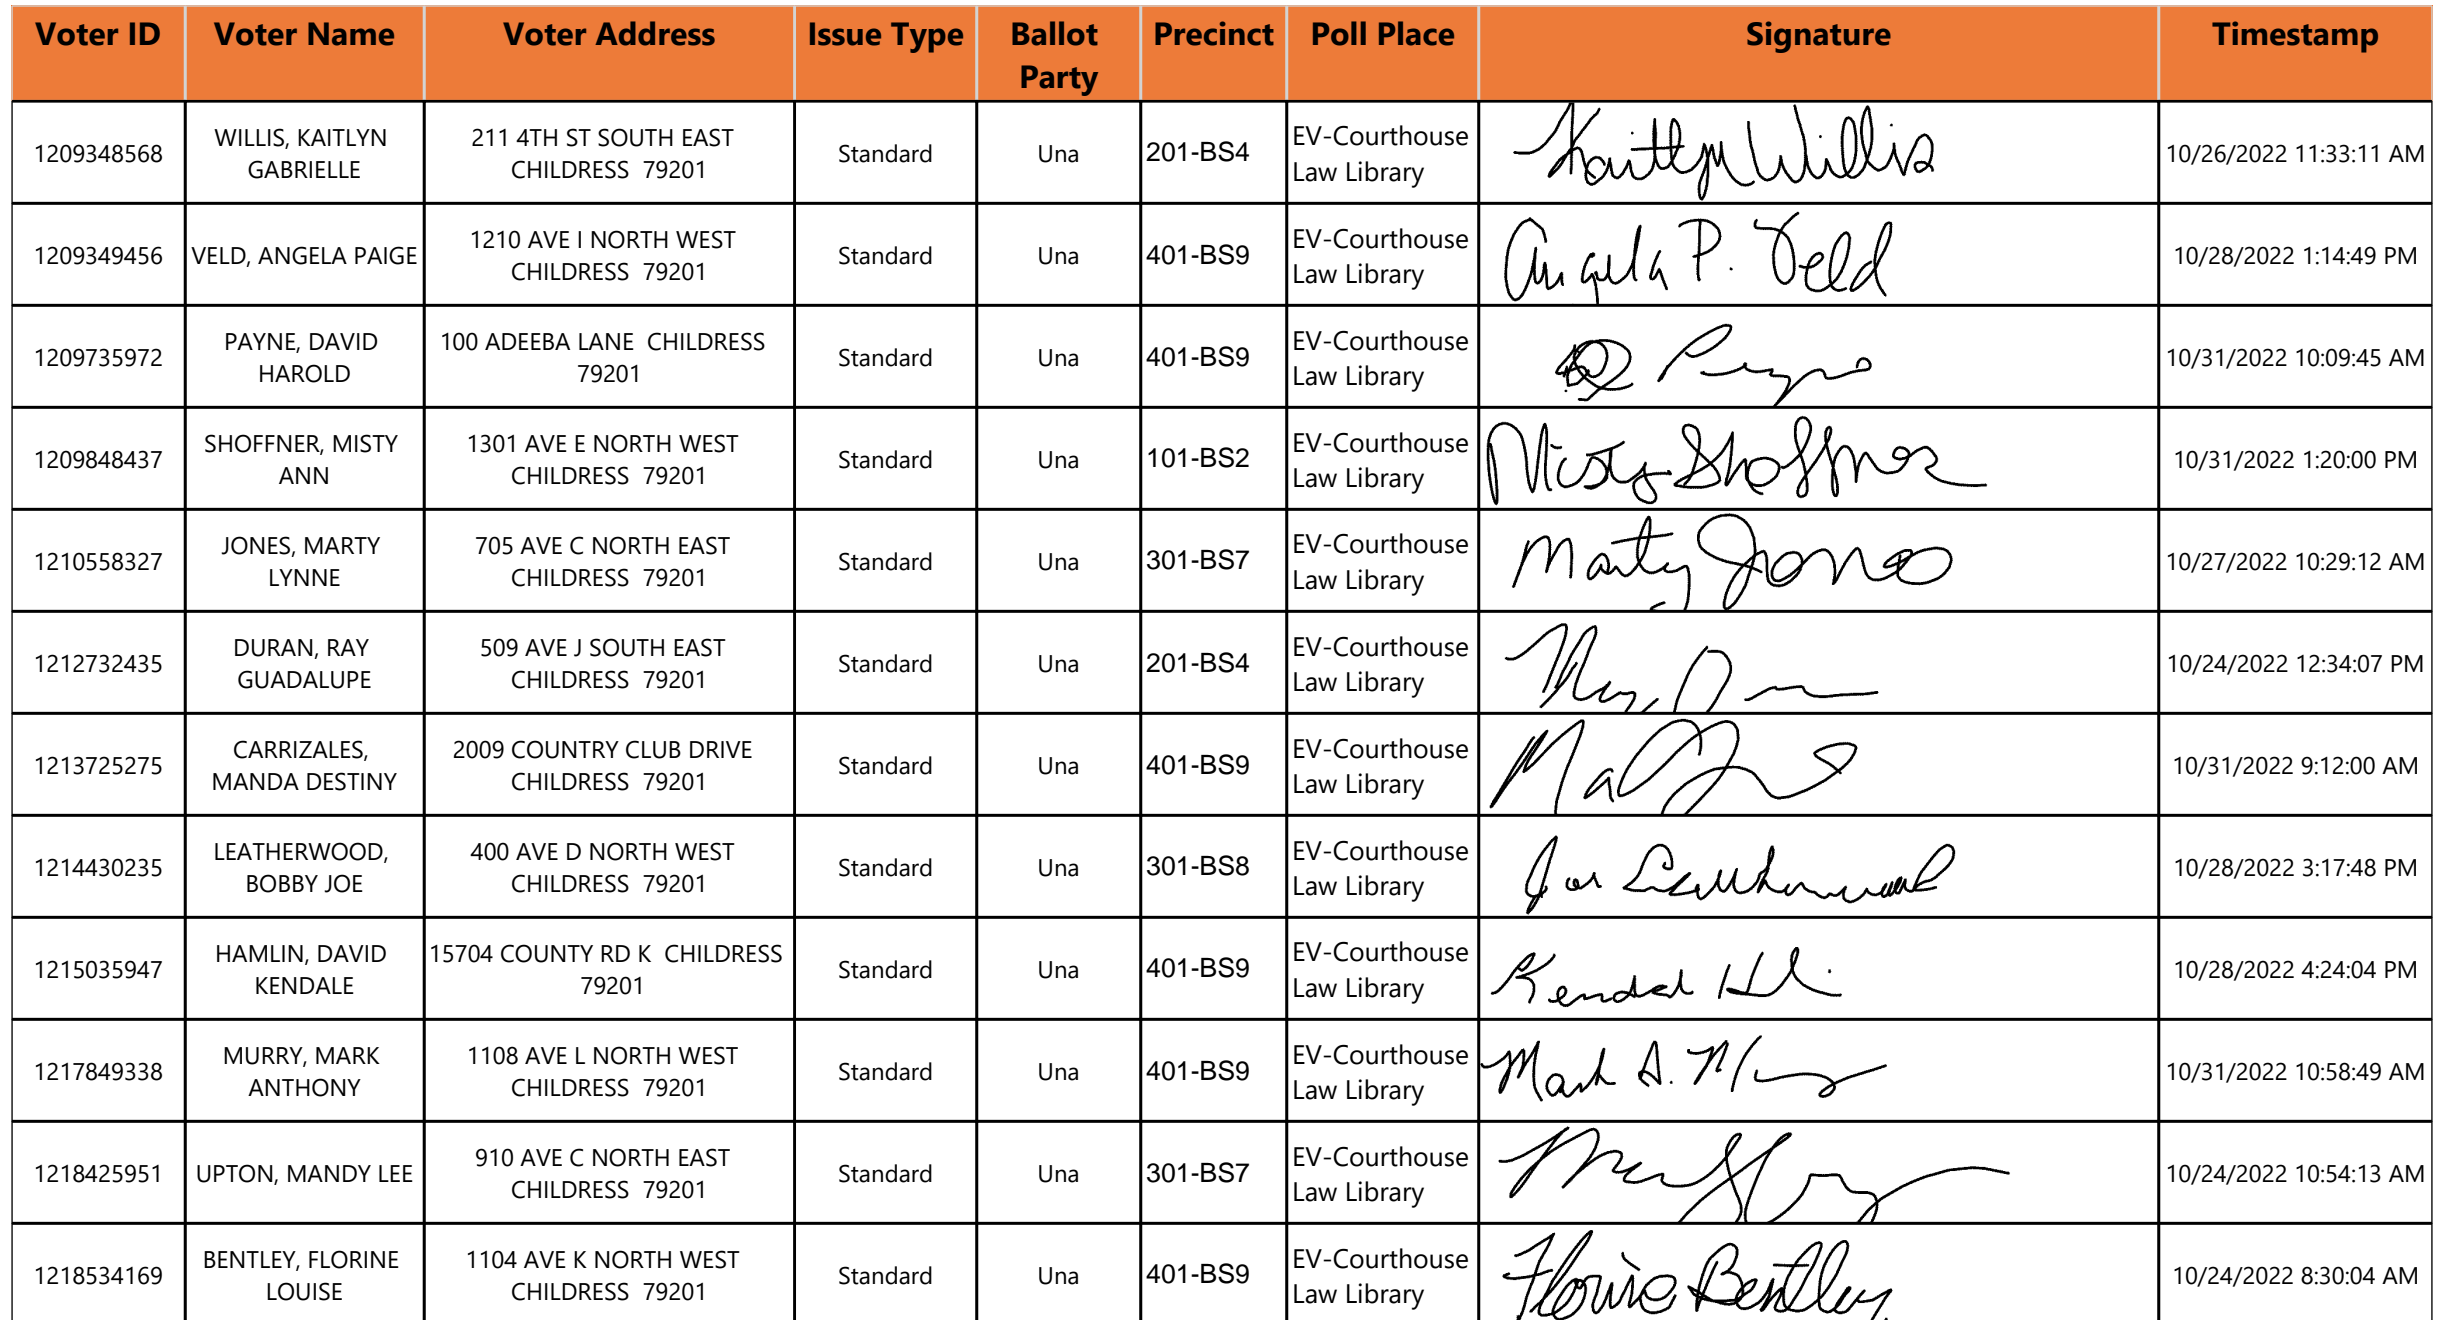 Voter ID Voter Name Voter Address Issue Type Ballot Party Precinct Poll Place Signature Timestamp
1209348568 WILLIS, KAITLYN GABRIELLE 211 4TH ST SOUTH EAST CHILDRESS 79201 Standard Una 201-BS4 EV-Courthouse Law Library Kaitlyn Willis 10/26/2022 11:33:11 AM
1209349456 VELD, ANGELA PAIGE 1210 AVE I NORTH WEST CHILDRESS 79201 Standard Una 401-BS9 EV-Courthouse Law Library Angela P. Veld 10/28/2022 1:14:49 PM
1209735972 PAYNE, DAVID HAROLD 100 ADEEBA LANE CHILDRESS 79201 Standard Una 401-BS9 EV-Courthouse Law Library 10/31/2022 10:09:45 AM
1209848437 SHOFFNER, MISTY ANN 1301 AVE E NORTH WEST CHILDRESS 79201 Standard Una 101-BS2 EV-Courthouse Law Library Misty Shoffner 10/31/2022 1:20:00 PM
1210558327 JONES, MARTY LYNNE 705 AVE C NORTH EAST CHILDRESS 79201 Standard Una 301-BS7 EV-Courthouse Law Library Marty Jones 10/27/2022 10:29:12 AM
1212732435 DURAN, RAY GUADALUPE 509 AVE J SOUTH EAST CHILDRESS 79201 Standard Una 201-BS4 EV-Courthouse Law Library 10/24/2022 12:34:07 PM
1213725275 CARRIZALES, MANDA DESTINY 2009 COUNTRY CLUB DRIVE CHILDRESS 79201 Standard Una 401-BS9 EV-Courthouse Law Library 10/31/2022 9:12:00 AM
1214430235 LEATHERWOOD, BOBBY JOE 400 AVE D NORTH WEST CHILDRESS 79201 Standard Una 301-BS8 EV-Courthouse Law Library Joe Leatherwood 10/28/2022 3:17:48 PM
1215035947 HAMLIN, DAVID KENDALE 15704 COUNTY RD K CHILDRESS 79201 Standard Una 401-BS9 EV-Courthouse Law Library 10/28/2022 4:24:04 PM
1217849338 MURRY, MARK ANTHONY 1108 AVE L NORTH WEST CHILDRESS 79201 Standard Una 401-BS9 EV-Courthouse Law Library Mark A. 10/31/2022 10:58:49 AM
1218425951 UPTON, MANDY LEE 910 AVE C NORTH EAST CHILDRESS 79201 Standard Una 301-BS7 EV-Courthouse Law Library 10/24/2022 10:54:13 AM
1218534169 BENTLEY, FLORINE LOUISE 1104 AVE K NORTH WEST CHILDRESS 79201 Standard Una 401-BS9 EV-Courthouse Law Library Florine Bentley 10/24/2022 8:30:04 AM